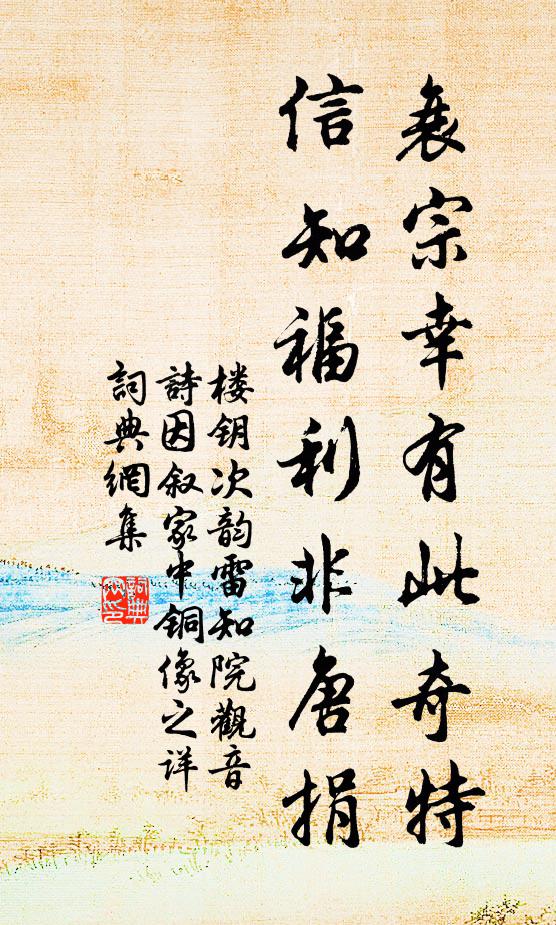 衰宗幸有此奇特
信知福利非唐捐
楼钥次韵雷知院觀音
詩因叙家中铜像之详
詞典網集